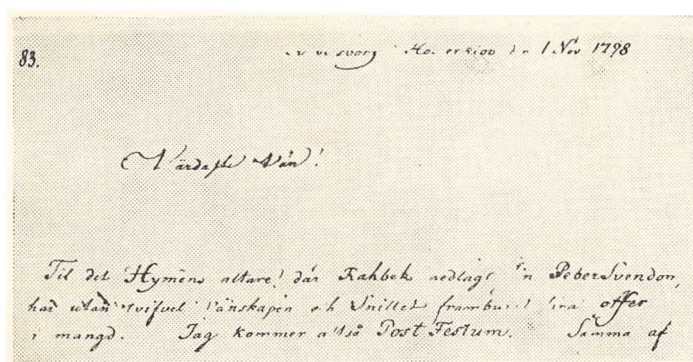 83.
d 1 Nov 1798
Värdaste Vän!
Til det Hymens altare! där Rahbek nedlagt sin PeberSvendom,
har utan tvifvel Vänskapen och Snillet framburit sina offer
i mängd. Jag kommer altså Post Festum. Samma af